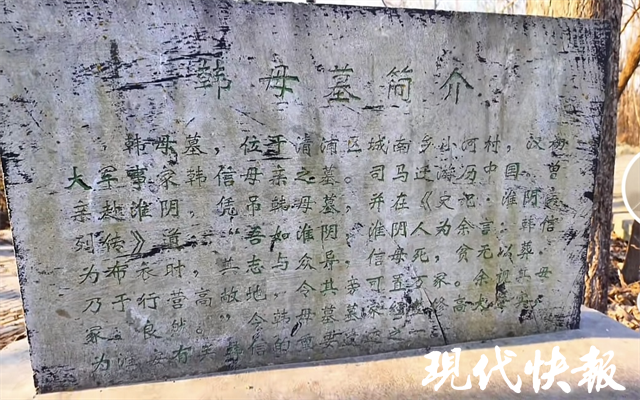 韩母墓简介
韩母�，位于清浦区城南乡小河村，汉初
大军事家韩信母亲之墓。司马迁游历中国，曾
亲赴淮阴，凭吊韩母墓，并在《史记·淮阴
列传》道："吾如淮阴，淮阴人为余言，韩信
为布衣时，其志与众异。其母死，贫无以葬，
乃于行营高敞地，令其旁可置万家。余视其母
冢，良然。"今韩母墓高大
为淮有关韩信的之一
现代快報